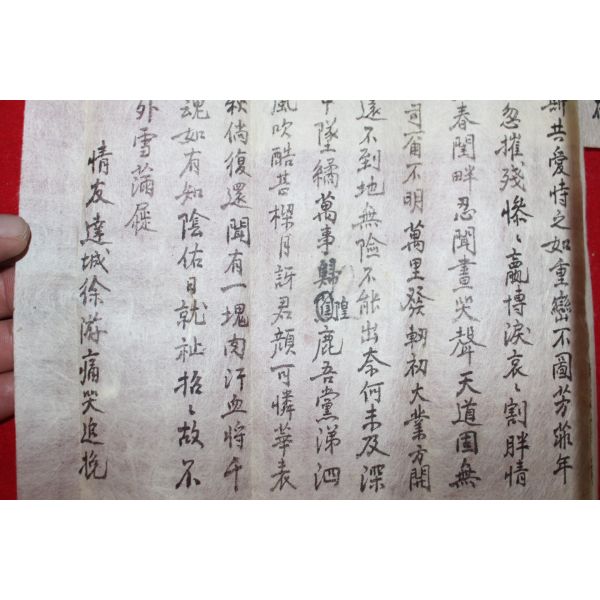 斯共愛恃之如重巒不圖芳年
忽摧殘慘〻嬴博淚哀〻割胖情
春閨畔忍聞晝哭聲天道固無
司甯不明萬里發軔初大業方開
遠不到地無險不能出奈何未及深
中墜繘萬事歸隍鹿吾黨涕泗
風吹酷甚樑月訝君顔可憐華表
秋倘復還聞有一塊肉汗血將千
魂如有知陰佑日就祉招〻故不
外雪滿屐
情友達城徐 痛哭追挽